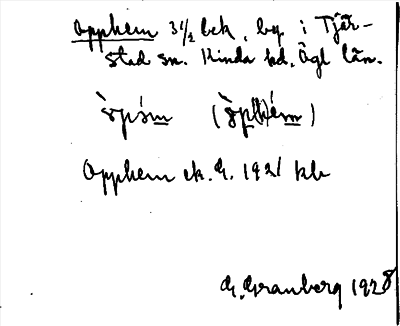 Opphem 3 1/2 bek. by. i Tjär-
stad sn. Kinda hd, Ögl län.
Opphem ek. G. 1921 kb
G. Granberg 1928